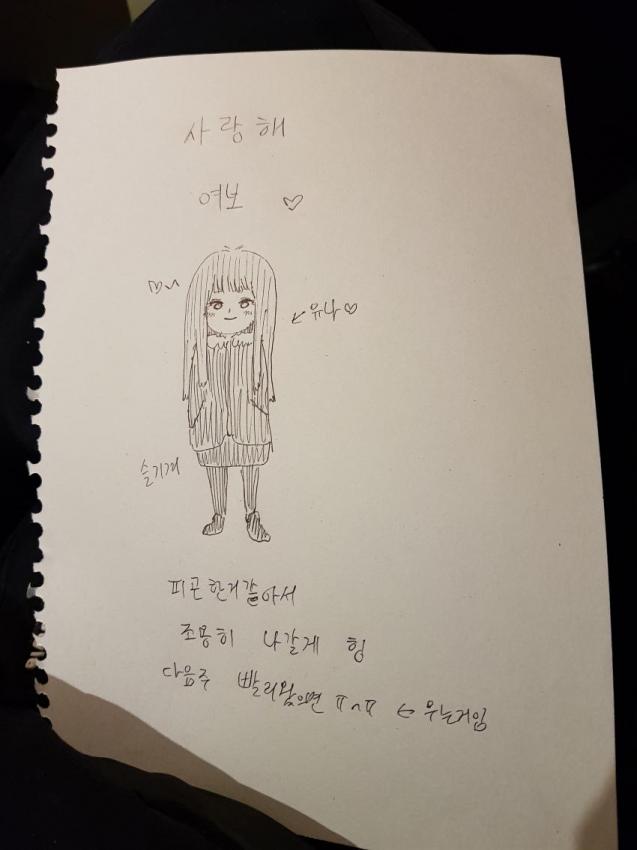 사랑해
여보 ♡
유나♡
슬기게
피곤한거같아서
조용히 나갈게 힝
다음주 빨리왔으면 ㅠㅅㅠ ← 우는거임